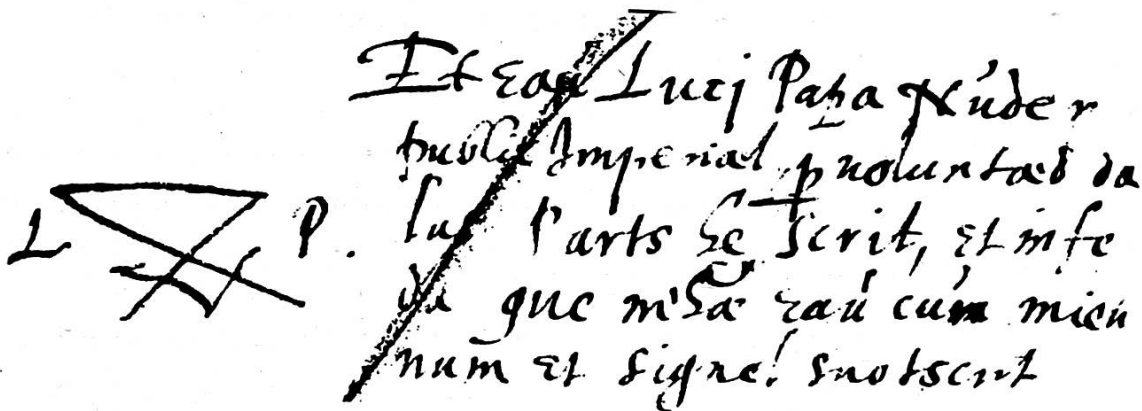 Et eau Luci Papa Nùder
public Imperiæl p uoluntæd da
L P. las Parts hę scrit, et in fe
da que m'hæ eaù cùm mieu
num et signel suotscrit